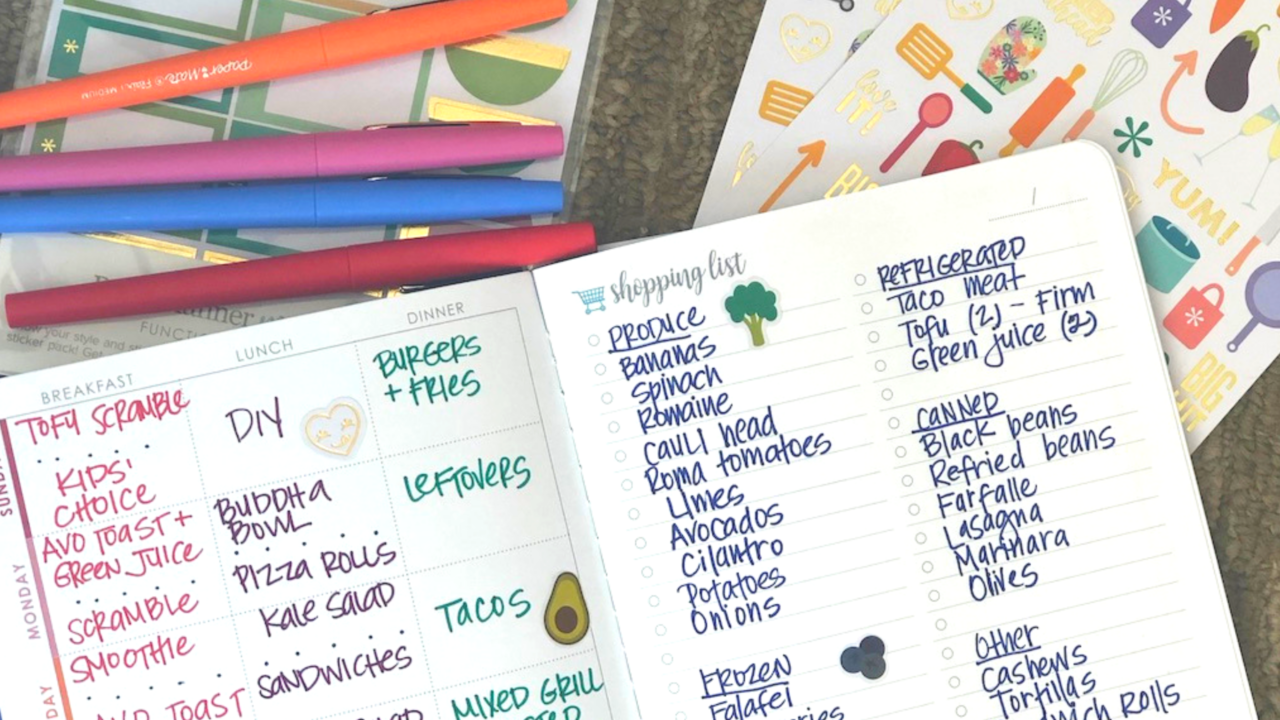 Paper Mate Flair MEDIUM
FUNCTI
your style and
sticker pack! Get
YUM!
BIG
BREAKFAST
LUNCH
DINNER
TOFU SCRAMBLE
KIDS'
CHOICE
DIY
BURGERS
+ FRIES
MONDAY
AVO TOAST +
GREEN JUICE
SCRAMBLE
BUDDHA
BOWL
PIZZA ROLLS
LEFTOVERS
SMOOTHIE
AVO TOAST
KALE SALAD
SANDWICHES
TACOS
MIXED GRILL
1
shopping list
PRODUCE
Bananas
Spinach
Romaine
Cauli head
Roma tomatoes
Limes
Avocados
Cilantro
Potatoes
Onions
FROZEN
Falafel
REFRIGERATED
Taco meat
Tofu (2) - Firm
Green juice (2)
CANNED
Black beans
Refried beans
Farfalle
Lasagna
Marinara
Olives
Other
Cashews
Tortillas
Rolls